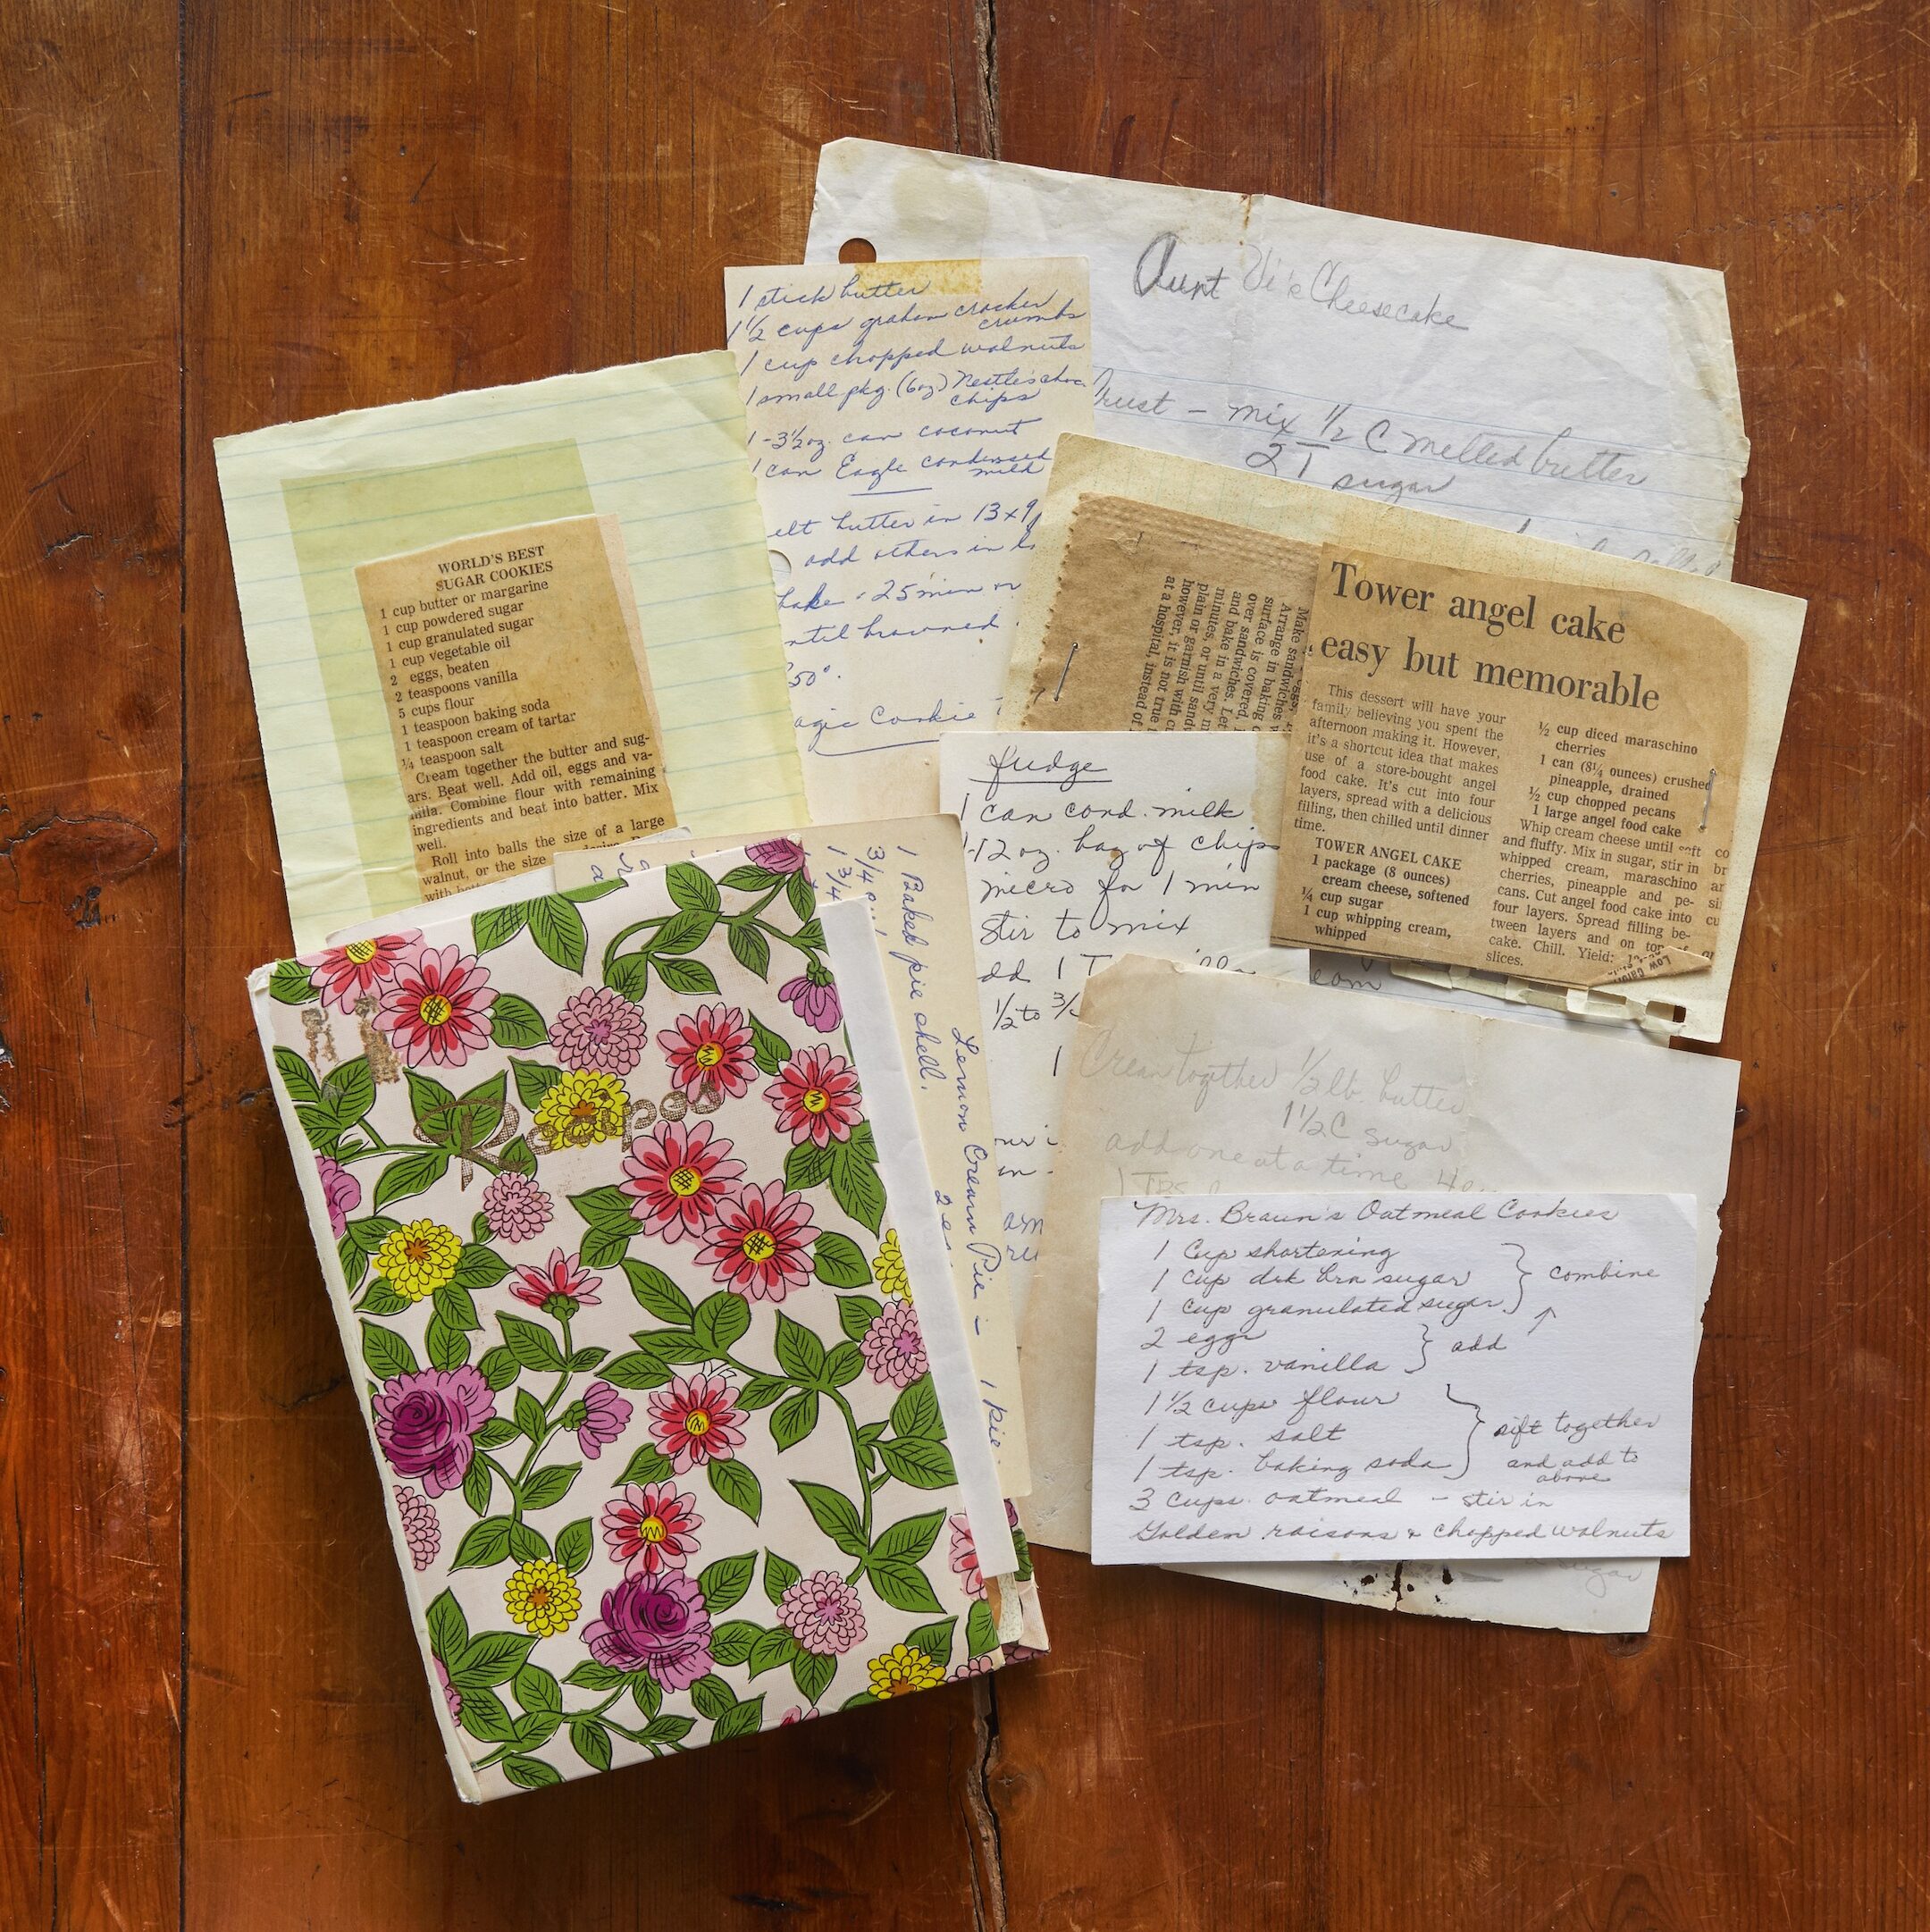 Aunt Vi's Cheesecake
Crust - mix 1/2 C melted butter
2 T sugar
1 stick butter
1 1/2 cups graham cracker
crumbs
1 cup chopped walnuts
1 small pkg. (6oz) Nestle's choc.
chips
1-3 1/2 oz. can coconut
1 can Eagle condensed
milk
elt butter in 13x9
add others in
bake - 25 min or
ntil browned
50°.
agic Cookie
WORLD'S BEST
SUGAR COOKIES
1 cup butter or margarine
1 cup powdered sugar
1 cup granulated sugar
1 cup vegetable oil
2 eggs, beaten
2 teaspoons vanilla
5 cups flour
1 teaspoon baking soda
1 teaspoon cream of tartar
¼ teaspoon salt
Cream together the butter and sug-
ars. Beat well. Add oil, eggs and va-
nilla. Combine flour with remaining
ingredients and beat into batter. Mix
well.
Roll into balls the size of a large
walnut, or the size desire.
Make sandwiches
Arrange in baking
surface is covered.
over sandwiches. Let
and bake in a very
minutes, or until
plain or garnish with
however, it is not true
at a hospital, instead of
Tower angel cake
easy but memorable
This dessert will have your
family believing you spent the
afternoon making it. However,
it's a shortcut idea that makes
use of a store-bought angel
food cake. It's cut into four
layers, spread with a delicious
filling, then chilled until dinner
time.
TOWER ANGEL CAKE
1 package (8 ounces)
cream cheese, softened
¼ cup sugar
1 cup whipping cream,
whipped
½ cup diced maraschino
cherries
1 can (8¼ ounces) crushed
pineapple, drained
½ cup chopped pecans
1 large angel food cake
Whip cream cheese until soft
and fluffy. Mix in sugar, stir in
whipped cream, maraschino
cherries, pineapple and pe-
cans. Cut angel food cake into
four layers. Spread filling be-
tween layers and on top of
cake. Chill. Yield:
slices.
Low
fudge
1 can cond. milk
1-12 oz. bag of chips
micro for 1 min
Stir to mix
dd 1 T
1/2 to 3/
1
com
Cream together 1/2 lb. butter
1 1/2 C sugar
add one at a time 4
1 TBS
Mrs. Braun's Oatmeal Cookies
1 Cup shortening
1 cup drk brn sugar
1 cup granulated sugar
combine
2 eggs
1 tsp. vanilla
add
1 1/2 cups flour
1 tsp. salt
1 tsp. baking soda
sift together
and add to
above
3 cups oatmeal - stir in
Golden raisons & chopped walnuts
sugar
1 Baked pie shell.
3/4 cu
1 3/4
Lemon Cream Pie - 1 pie
2 e
Recipes